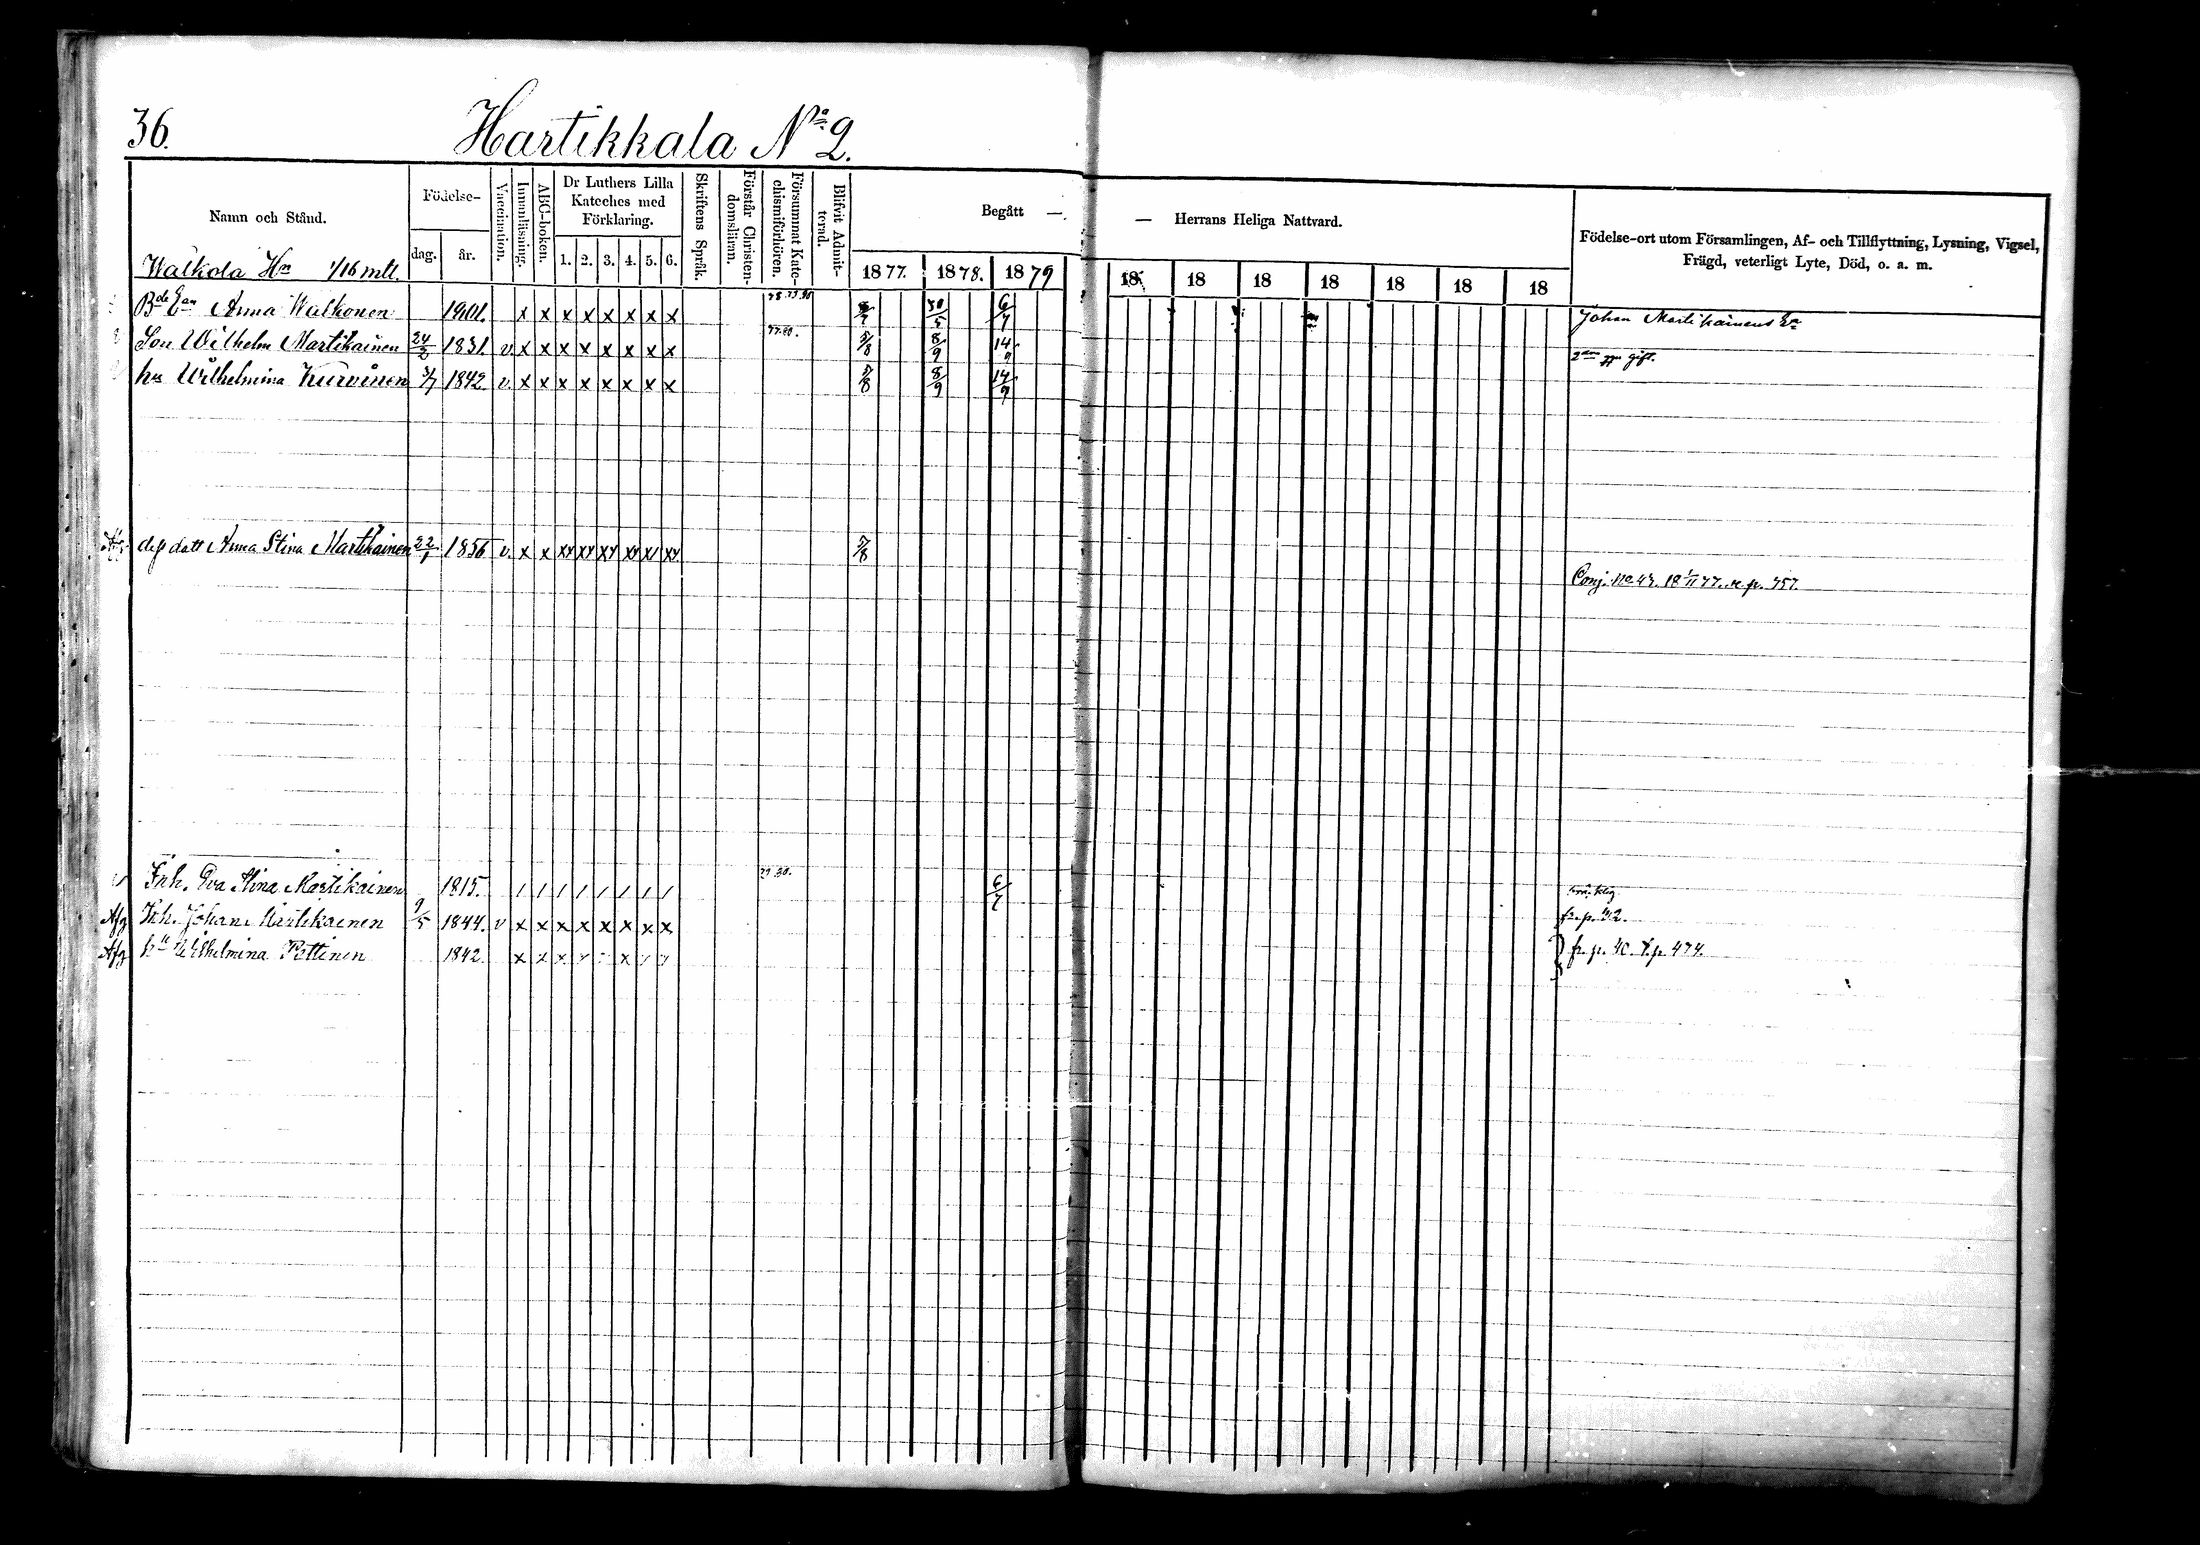 36.
Hartikkala No 2.
Namn och Stånd.
Födelse-
dag.
år.
Vaccination.
Innanläsning.
ABC-boken.
Dr Luthers Lilla
Kateches med
Förklaring.
1. 2. 3. 4. 5. 6.
Skriftens Språk.
Förstår Christen-
domsläran.
Försummat Kate-
chismiförhören.
Blifvit Admit-
terad.
Begått —
— Herrans Heliga Nattvard.
1877. 1878. 1879 18 18 18 18 18 18 18
Födelse-ort utom Församlingen, Af- och Tillflyttning, Lysning, Vigsel,
Frägd, veterligt Lyte, Död, o. a. m.
Walkola Hn 1/16 mtl.
Bde Ean Anna Walkonen x x x x x x x x 30/5 6/7 Johan Martikainens Ea
Son Wilhelm Martikainen 24/2 1831. v. x x x x x x x x 5/8 8/9 14/9 2dra ggn gift.
hu Wilhelmina Kurvinen 3/7 1842 v. x x x x x x x x 5/8 8/9 14/9
dess dott Anna Stina Martikainen 22/1 1856 v. x x xy xy xy xy xy xy. 5/8
Conj. No 47. 18 1/11 77. se p. 757.
Inh. Eva Stina Martikainen 1815. / / / / / / / / 79.80. 6/7
Afg Inh. Johan Martikainen 9/5 1844. v x x x x x x x x
Afg hu Wilhelmina Pettinen 1842. x x x x fr. p. t. p. 474.